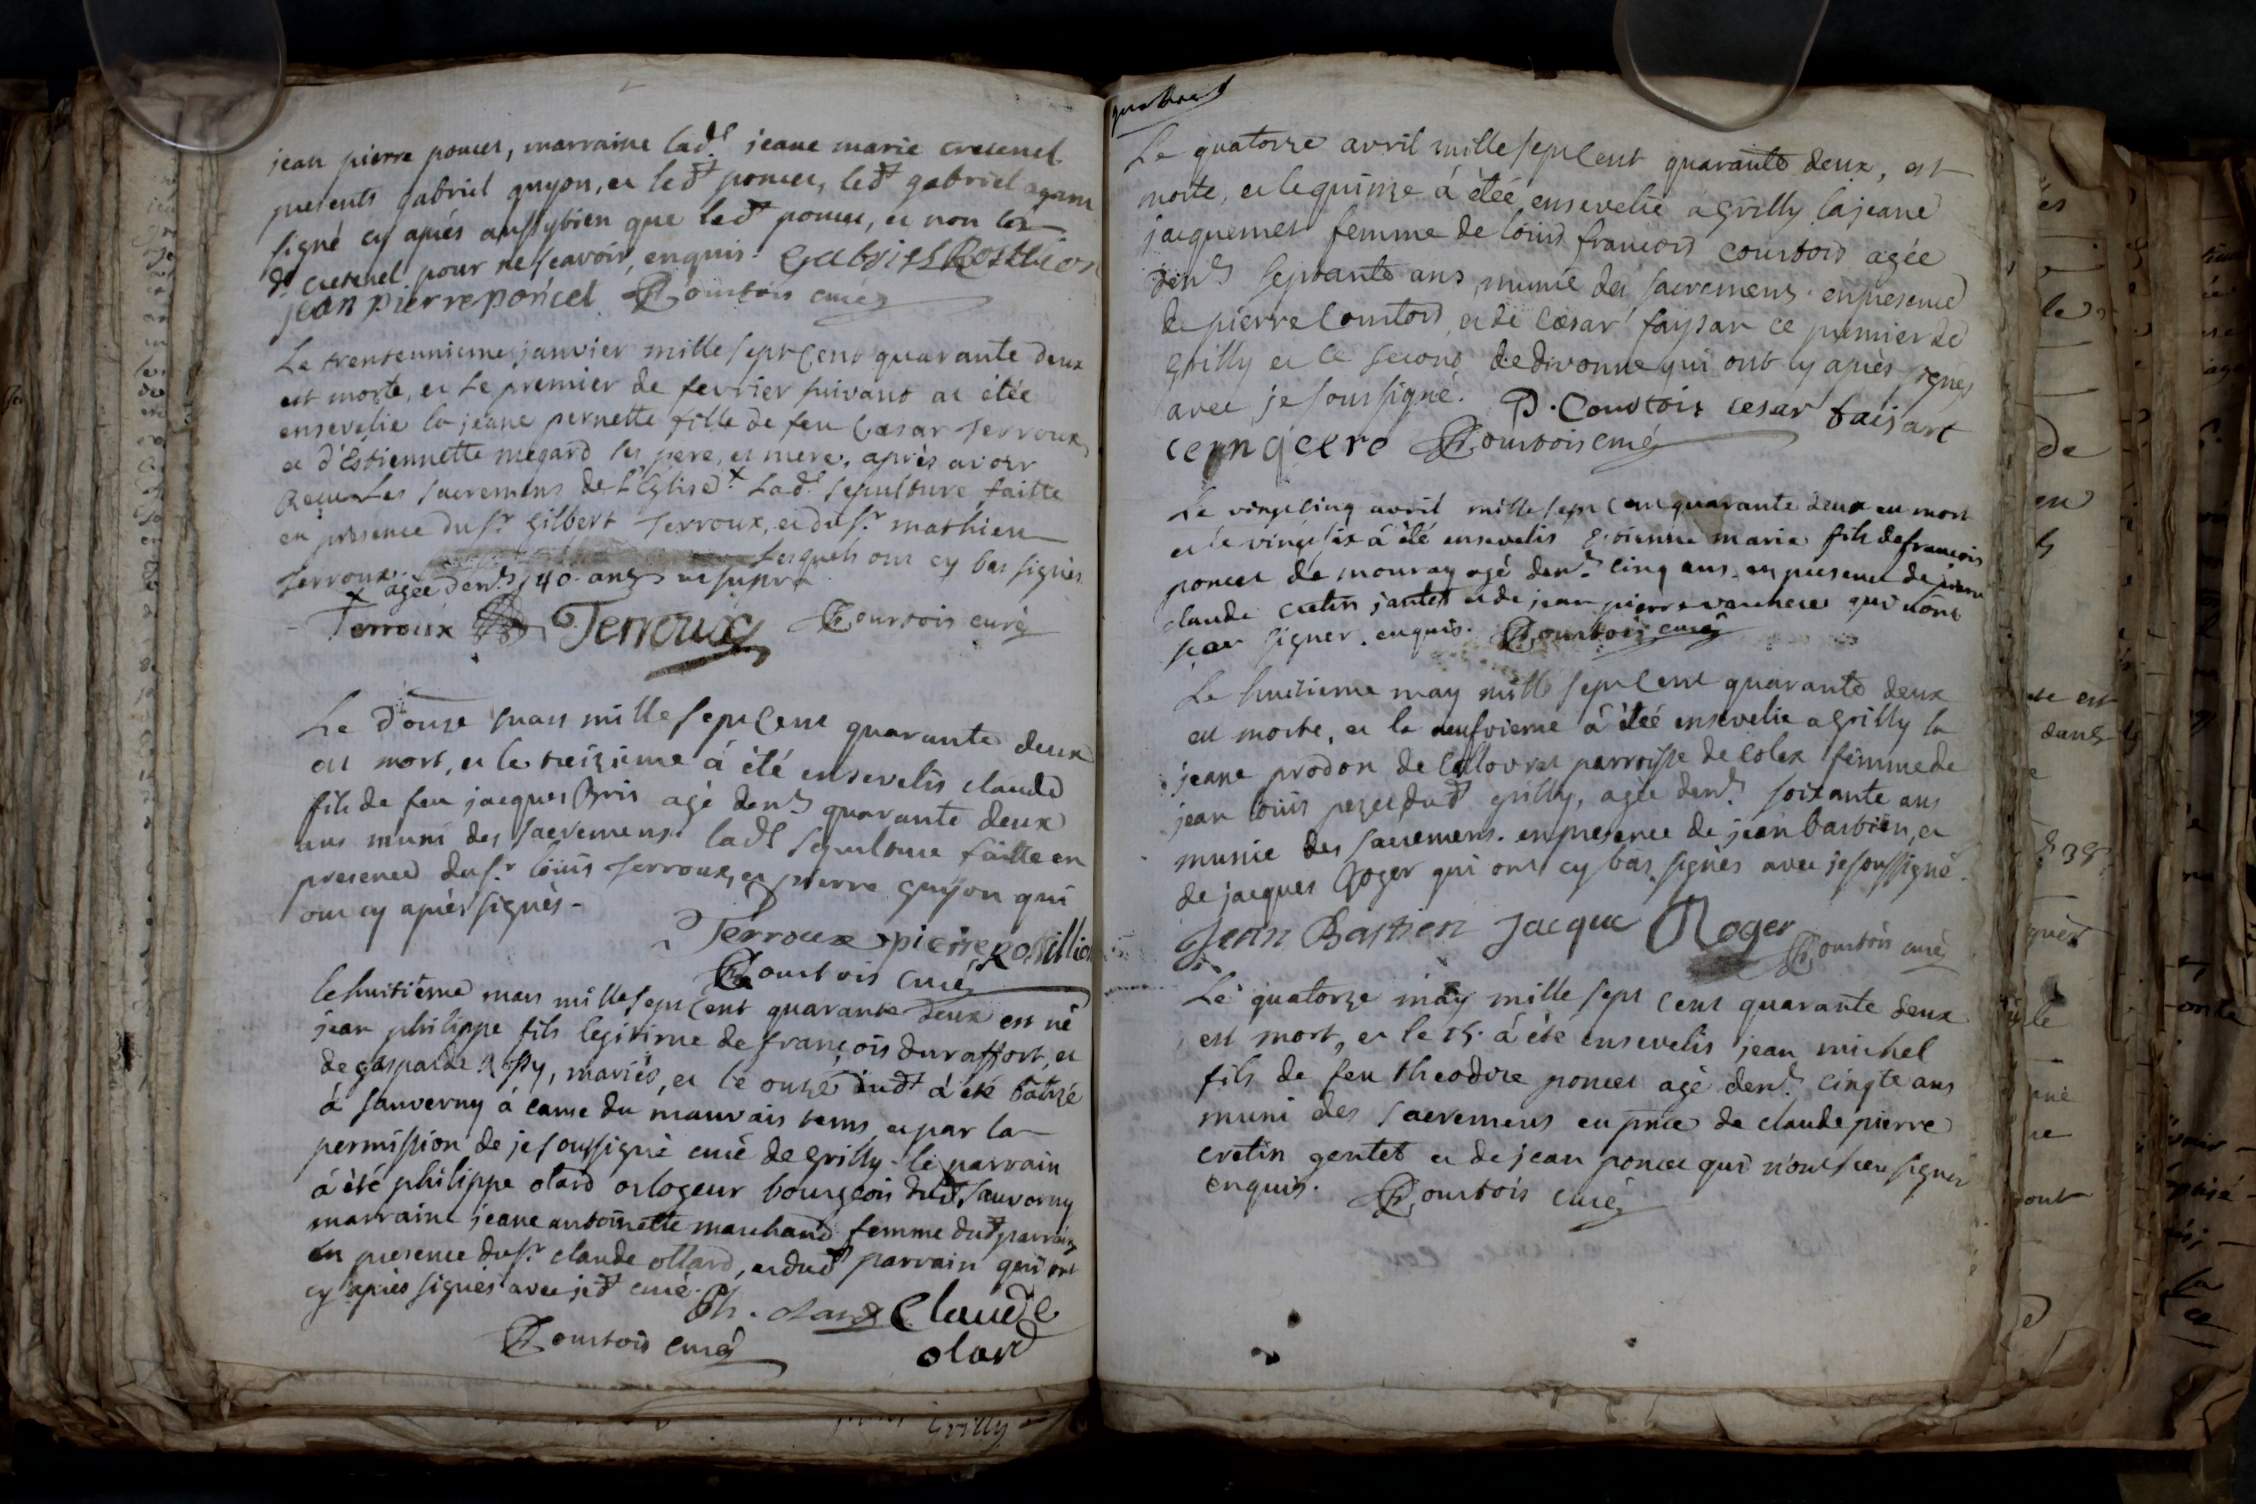 jean pierre poncet, marraine lad.e jeane marie cretenet
presents gabriel guyon, et led.t poncet, led.t gabriel ayant
signé cy aprés aussybien que led.t poncet, et non les
d.t cretenet pour ne scavoir, enquis. Gabriel Rosillion
jean pierre poncet Courtois curé
Le trenteunieme janvier mille sept cent quarante deux
est morte, et le premier de fevrier suivant at étée
ensevelie la jeane pernette fille de feu Cæsar Terroux
et d'Estiennette megard ses pere, et mere, aprés avoir
Reçu Les sacremens de L'Eglise x Lad.e sepulture faitte
en presence du s.r Gilbert Terroux, et du s.r mathieu
Terroux. Lesquels ont cy bas signés
x agée den.v 40. ans ut supra
Terroux Terroux Courtois curé
Le douze mars mille sept cent quarante deux
est mort, et le treizieme á été ensevelis claude
fils de feu jacques Bris agé den.v quarante deux
ans muni des sacremens. lad.e sepulture faitte en
presence du s.r Loüis Terroux, et pierre guyon qui
ont cy aprés signés -
Terroux pierre Rosillion
Courtois curé
le huitiéme mars mille sept cent quarante deux est né
jean philippe fils legitime de françois duraffort, et
de gasparde Rossy, mariés, et le onze dud.t á été batizé
á sauverny á cause du mauvais tems et par la
permission de je soussigné curé de grilly. le parrain
á été philippe olard orlogeur bourgeois dud.t sauverny
marraine jeane antoinette marchand femme dud.t parrain
en presence du s.r claude ollard, et dud.t parrain qui ont
cy aprés signés avec je d.t curé. Ph. olard Claude
Courtois curé olard
Le quatorze avril mille sept cent quarante deux, est
morte, et le quinze á étée ensevelie á grilly la jeane
jacquemet femme de loüis francois courtois agée
den.v septante ans, munie des sacremens. en presence
de pierre Courtois et de Cæsar faysar ce premier de
grilly et ce second de divonne qui ont cy aprés signés
avec je soussigné. P. Courtois cesar faijart
Courtois curé
Le vingt cinq avril mille sept cent quarante deux est mort
et le vingt six á été ensevelis Etienne marie fils de francois
poncet de mouray agé den.v cinq ans. en presence de pierre
claude cretin jantet et de jean pierre qui n'ont
sceu signer. enquis. Courtois curé
Le huitieme may mille sept cent quarante deux
est morte, et le neufvieme á étée ensevelie a grilly la
jeane prodon de Collovrex parroisse de Colex femme de
jean loüis pezet dud.t grilly, agée den.v soixante ans
munie des sacremens. en presence de jean bastien, et
de jacques Roger qui ont cy bas signés avec je soussigné.
Jean Bastien Jacque Roger
Courtois curé
Le quatorze may mille sept cent quarante deux
est mort, et le 15. á été ensevelis jean michel
fils de feu theodore poncet agé den.v cinqte ans
muni des sacremens en pnce de claude pierre
cretin gentet et de jean poncet qui n'ont sceu signer
enquis. Courtois curé